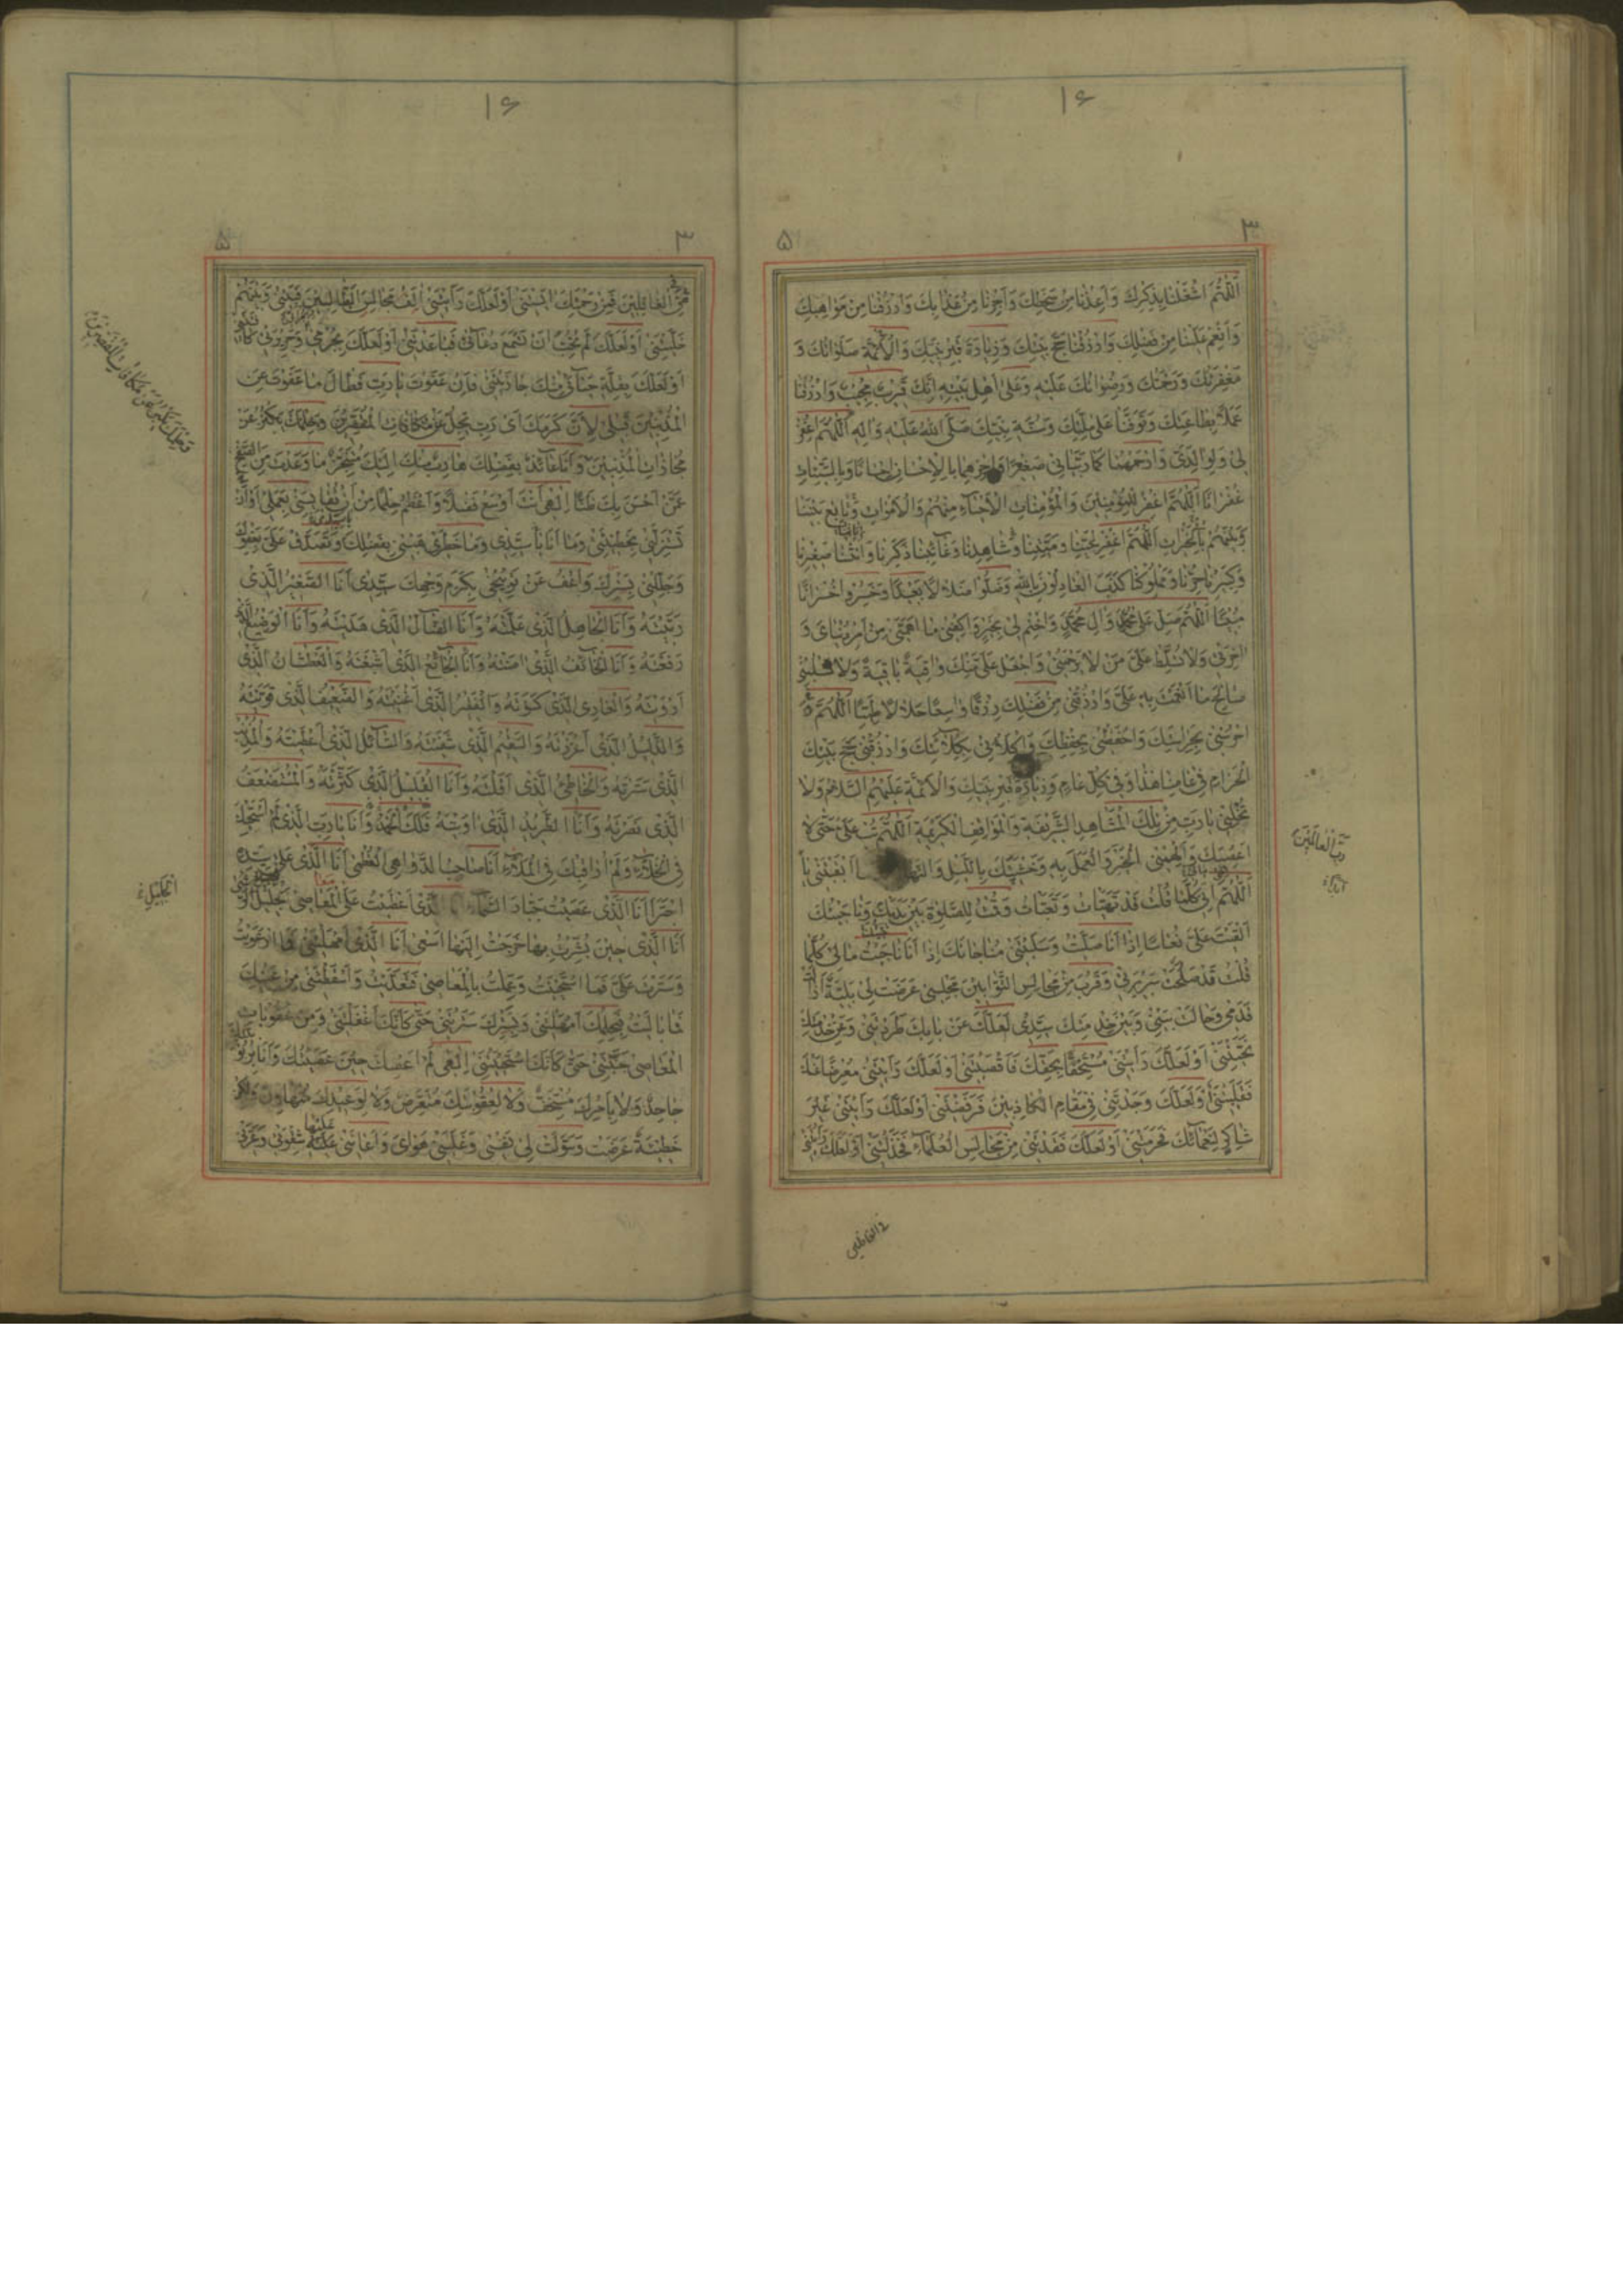 ١۶
٣
۵
اَللّٰهُمَّ اشْغَلْنَا بِذِكْرِكَ وَاَعِذْنَا مِنْ سَخَطِكَ وَاَجِرْنَا مِنْ عَذَابِكَ وَارْزُقْنَا مِنْ مَوَاهِبِكَ
وَاَنْعِمْ عَلَيْنَا مِنْ فَضْلِكَ وَارْزُقْنَا حَجَّ بَيْتِكَ وَزِيَارَةَ قَبْرِ نَبِيِّكَ وَالْاَئِمَّةِ صَلَوَاتُكَ وَ
مَغْفِرَتُكَ وَرَحْمَتُكَ وَرِضْوَانُكَ عَلَيْهِ وَعَلٰى اَهْلِ بَيْتِهِ اِنَّكَ قَرِيبٌ مُجِيبٌ وَارْزُقْنَا
عَمَلًا بِطَاعَتِكَ وَتَوَفَّنَا عَلٰى مِلَّتِكَ وَسُنَّةِ نَبِيِّكَ صَلَّى اللّٰهُ عَلَيْهِ وَاٰلِهِ اَللّٰهُمَّ اغْفِرْ
لِي وَلِوَالِدَيَّ وَارْحَمْهُمَا كَمَا رَبَّيَانِي صَغِيرًا وَاجْزِهِمَا بِالْاِحْسَانِ اِحْسَانًا وَبِالسَّيِّئَاتِ
غُفْرَانًا اَللّٰهُمَّ اغْفِرْ لِلْمُؤْمِنِينَ وَالْمُؤْمِنَاتِ الْاَحْيَاءِ مِنْهُمْ وَالْاَمْوَاتِ وَتَابِعْ بَيْنَنَا
وَبَيْنَهُمْ بِالْخَيْرَاتِ اَللّٰهُمَّ اغْفِرْ لِحَيِّنَا وَمَيِّتِنَا وَشَاهِدِنَا وَغَائِبِنَا ذَكَرِنَا وَاُنْثَانَا صَغِيرِنَا
وَكَبِيرِنَا حُرِّنَا وَمَمْلُوكِنَا كَذَبَ الْعَادِلُونَ بِاللّٰهِ وَضَلُّوا ضَلَالًا بَعِيدًا وَخَسِرُوا خُسْرَانًا
مُبِينًا اَللّٰهُمَّ صَلِّ عَلٰى مُحَمَّدٍ وَاٰلِ مُحَمَّدٍ وَاخْتِمْ لِي بِخَيْرٍ وَاكْفِنِي مَا اَهَمَّنِي مِنْ اَمْرِ دُنْيَايَ وَ
اٰخِرَتِي وَلَا تُسَلِّطْ عَلَيَّ مَنْ لَا يَرْحَمُنِي وَاجْعَلْ عَلَيَّ مِنْكَ وَاقِيَةً بَاقِيَةً وَلَا تَسْلُبْنِي
صَالِحَ مَا اَنْعَمْتَ بِهِ عَلَيَّ وَارْزُقْنِي مِنْ فَضْلِكَ رِزْقًا وَاسِعًا حَلَالًا طَيِّبًا اَللّٰهُمَّ
احْرُسْنِي بِحِرَاسَتِكَ وَاحْفَظْنِي بِحِفْظِكَ وَاكْلَاْنِي بِكِلَائَتِكَ وَارْزُقْنِي حَجَّ بَيْتِكَ
الْحَرَامِ فِي عَامِنَا هٰذَا وَفِي كُلِّ عَامٍ وَزِيَارَةَ قَبْرِ نَبِيِّكَ وَالْاَئِمَّةِ عَلَيْهِمُ السَّلَامُ وَلَا
تُخْلِنِي يَا رَبِّ مِنْ تِلْكَ الْمَشَاهِدِ الشَّرِيفَةِ وَالْمَوَاقِفِ الْكَرِيمَةِ اَللّٰهُمَّ تُبْ عَلَيَّ حَتّٰى لَا
اَعْصِيَكَ وَاَلْهِمْنِي الْخَيْرَ وَالْعَمَلَ بِهِ وَخَشْيَتَكَ بِاللَّيْلِ وَالنَّهَارِ مَا اَبْقَيْتَنِي يَا
رَبَّ الْعَالَمِينَ
اَللّٰهُمَّ اِنِّي كُلَّمَا قُلْتُ قَدْ تَهَيَّاْتُ وَتَعَبَّاْتُ وَقُمْتُ لِلصَّلٰوةِ بَيْنَ يَدَيْكَ وَنَاجَيْتُكَ
اَلْقَيْتَ عَلَيَّ نُعَاسًا اِذَا اَنَا صَلَّيْتُ وَسَلَبْتَنِي مُنَاجَاتَكَ اِذَا اَنَا نَاجَيْتُ مَا لِي كُلَّمَا
قُلْتُ قَدْ صَلُحَتْ سَرِيرَتِي وَقَرُبَ مِنْ مَجَالِسِ التَّوَّابِينَ مَجْلِسِي عَرَضَتْ لِي بَلِيَّةٌ اَزَالَتْ
قَدَمِي وَحَالَتْ بَيْنِي وَبَيْنَ خِدْمَتِكَ سَيِّدِي لَعَلَّكَ عَنْ بَابِكَ طَرَدْتَنِي وَعَنْ خِدْمَتِكَ
نَحَّيْتَنِي اَوْ لَعَلَّكَ رَاَيْتَنِي مُسْتَخِفًّا بِحَقِّكَ فَاَقْصَيْتَنِي اَوْ لَعَلَّكَ رَاَيْتَنِي مُعْرِضًا عَنْكَ
فَقَلَيْتَنِي اَوْ لَعَلَّكَ وَجَدْتَنِي فِي مَقَامِ الْكَاذِبِينَ فَرَفَضْتَنِي اَوْ لَعَلَّكَ رَاَيْتَنِي غَيْرَ
شَاكِرٍ لِنَعْمَائِكَ فَحَرَمْتَنِي اَوْ لَعَلَّكَ فَقَدْتَنِي مِنْ مَجَالِسِ الْعُلَمَاءِ فَخَذَلْتَنِي اَوْ لَعَلَّكَ رَاَيْتَنِي
فِي الْغَافِلِينَ
١۶
٣
۵
فِي الْغَافِلِينَ فَمِنْ رَحْمَتِكَ اٰيَسْتَنِي اَوْ لَعَلَّكَ رَاَيْتَنِي اٰلَفُ مَجَالِسَ الْبَطَّالِينَ فَبَيْنِي وَبَيْنَهُمْ
خَلَّيْتَنِي اَوْ لَعَلَّكَ لَمْ تُحِبَّ اَنْ تَسْمَعَ دُعَائِي فَبَاعَدْتَنِي اَوْ لَعَلَّكَ بِجُرْمِي وَجَرِيرَتِي كَافَيْتَنِي
اَوْ لَعَلَّكَ بِقِلَّةِ حَيَائِي مِنْكَ جَازَيْتَنِي فَاِنْ عَفَوْتَ يَا رَبِّ فَطَالَ مَا عَفَوْتَ عَنِ
الْمُذْنِبِينَ قَبْلِي لِاَنَّ كَرَمَكَ اَيْ رَبِّ يَجِلُّ عَنْ مُكَافَاتِ الْمُقَصِّرِينَ وَحِلْمَكَ يَكْبُرُ عَنْ
مُجَازَاتِ الْمُذْنِبِينَ وَاَنَا عَائِذٌ بِفَضْلِكَ هَارِبٌ مِنْكَ اِلَيْكَ مُتَنَجِّزٌ مَا وَعَدْتَ مِنَ الصَّفْحِ
عَمَّنْ اَحْسَنَ بِكَ ظَنًّا اِلٰهِي اَنْتَ اَوْسَعُ فَضْلًا وَاَعْظَمُ حِلْمًا مِنْ اَنْ تُقَايِسَنِي بِعَمَلِي اَوْ اَنْ
تَسْتَزِلَّنِي بِخَطِيئَتِي وَمَا اَنَا يَا سَيِّدِي وَمَا خَطَرِي هَبْنِي بِفَضْلِكَ وَتَصَدَّقْ عَلَيَّ بِعَفْوِكَ
وَجَلِّلْنِي بِسَتْرِكَ وَاعْفُ عَنْ تَوْبِيخِي بِكَرَمِ وَجْهِكَ سَيِّدِي اَنَا الصَّغِيرُ الَّذِي
رَبَّيْتَهُ وَاَنَا الْجَاهِلُ الَّذِي عَلَّمْتَهُ وَاَنَا الضَّالُّ الَّذِي هَدَيْتَهُ وَاَنَا الْوَضِيعُ الَّذِي
رَفَعْتَهُ وَاَنَا الْخَائِفُ الَّذِي اٰمَنْتَهُ وَاَنَا الْجَائِعُ الَّذِي اَشْبَعْتَهُ وَالْعَطْشَانُ الَّذِي
اَرْوَيْتَهُ وَالْعَارِي الَّذِي كَسَوْتَهُ وَالْفَقِيرُ الَّذِي اَغْنَيْتَهُ وَالضَّعِيفُ الَّذِي قَوَّيْتَهُ
وَالذَّلِيلُ الَّذِي اَعْزَزْتَهُ وَالسَّقِيمُ الَّذِي شَفَيْتَهُ وَالسَّائِلُ الَّذِي اَعْطَيْتَهُ وَالْمُذْنِبُ
الَّذِي سَتَرْتَهُ وَالْخَاطِئُ الَّذِي اَقَلْتَهُ وَاَنَا الْقَلِيلُ الَّذِي كَثَّرْتَهُ وَالْمُسْتَضْعَفُ
الَّذِي نَصَرْتَهُ وَاَنَا الطَّرِيدُ الَّذِي اٰوَيْتَهُ فَلَكَ الْحَمْدُ وَاَنَا يَا رَبِّ الَّذِي لَمْ اَسْتَحْيِكَ
فِي الْخَلَاءِ وَلَمْ اُرَاقِبْكَ فِي الْمَلَاءِ اَنَا صَاحِبُ الدَّوَاهِي الْعُظْمٰى اَنَا الَّذِي عَلٰى سَيِّدِهِ
اجْتَرٰى اَنَا الَّذِي عَصَيْتُ جَبَّارَ السَّمَاءِ الَّذِي اَعْطَيْتُ عَلَى الْمَعَاصِي جَلِيلَ
اَنَا الَّذِي حِينَ بُشِّرْتُ بِهَا خَرَجْتُ اِلَيْهَا اَسْعٰى اَنَا الَّذِي اَمْهَلْتَنِي فَمَا ارْعَوَيْتُ
وَسَتَرْتَ عَلَيَّ فَمَا اسْتَحْيَيْتُ وَعَمِلْتُ بِالْمَعَاصِي فَتَعَدَّيْتُ وَاَسْقَطْتَنِي مِنْ عَيْنِكَ
فَمَا بَالَيْتُ فَبِحِلْمِكَ اَمْهَلْتَنِي وَبِسِتْرِكَ سَتَرْتَنِي حَتّٰى كَاَنَّكَ اَغْفَلْتَنِي وَمِنْ عُقُوبَاتِ
الْمَعَاصِي جَنَّبْتَنِي حَتّٰى كَاَنَّكَ اسْتَحْيَيْتَنِي اِلٰهِي لَمْ اَعْصِكَ حِينَ عَصَيْتُكَ وَاَنَا بِرُبُوبِيَّتِكَ
جَاحِدٌ وَلَا بِاَمْرِكَ مُسْتَخِفٌّ وَلَا لِعُقُوبَتِكَ مُتَعَرِّضٌ وَلَا لِوَعِيدِكَ مُتَهَاوِنٌ وَلٰكِنْ
خَطِيئَةٌ عَرَضَتْ وَسَوَّلَتْ لِي نَفْسِي وَغَلَبَنِي هَوَايَ وَاَعَانَنِي عَلَيْهَا شِقْوَتِي وَغَرَّنِي